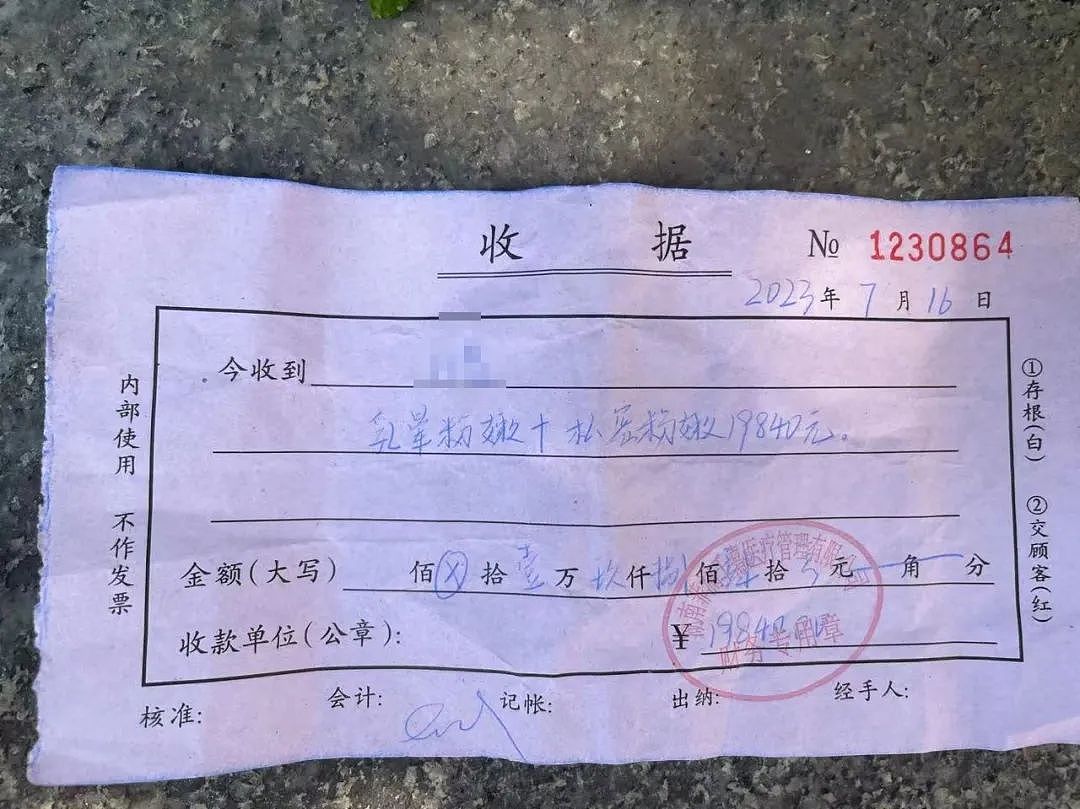 收据
№ 1230864
2023年7月16日
今收到
乳晕粉嫩+私密粉嫩19840元.
金额(大写) 佰ⓧ拾壹万玖仟捌佰肆拾 元 角 分
收款单位(公章):
¥ 19840
医疗管理有限
财务专用章
核准: 会计: 记帐: 出纳: 经手人:
内部使用 不作发票
①存根(白) ②交顾客(红)